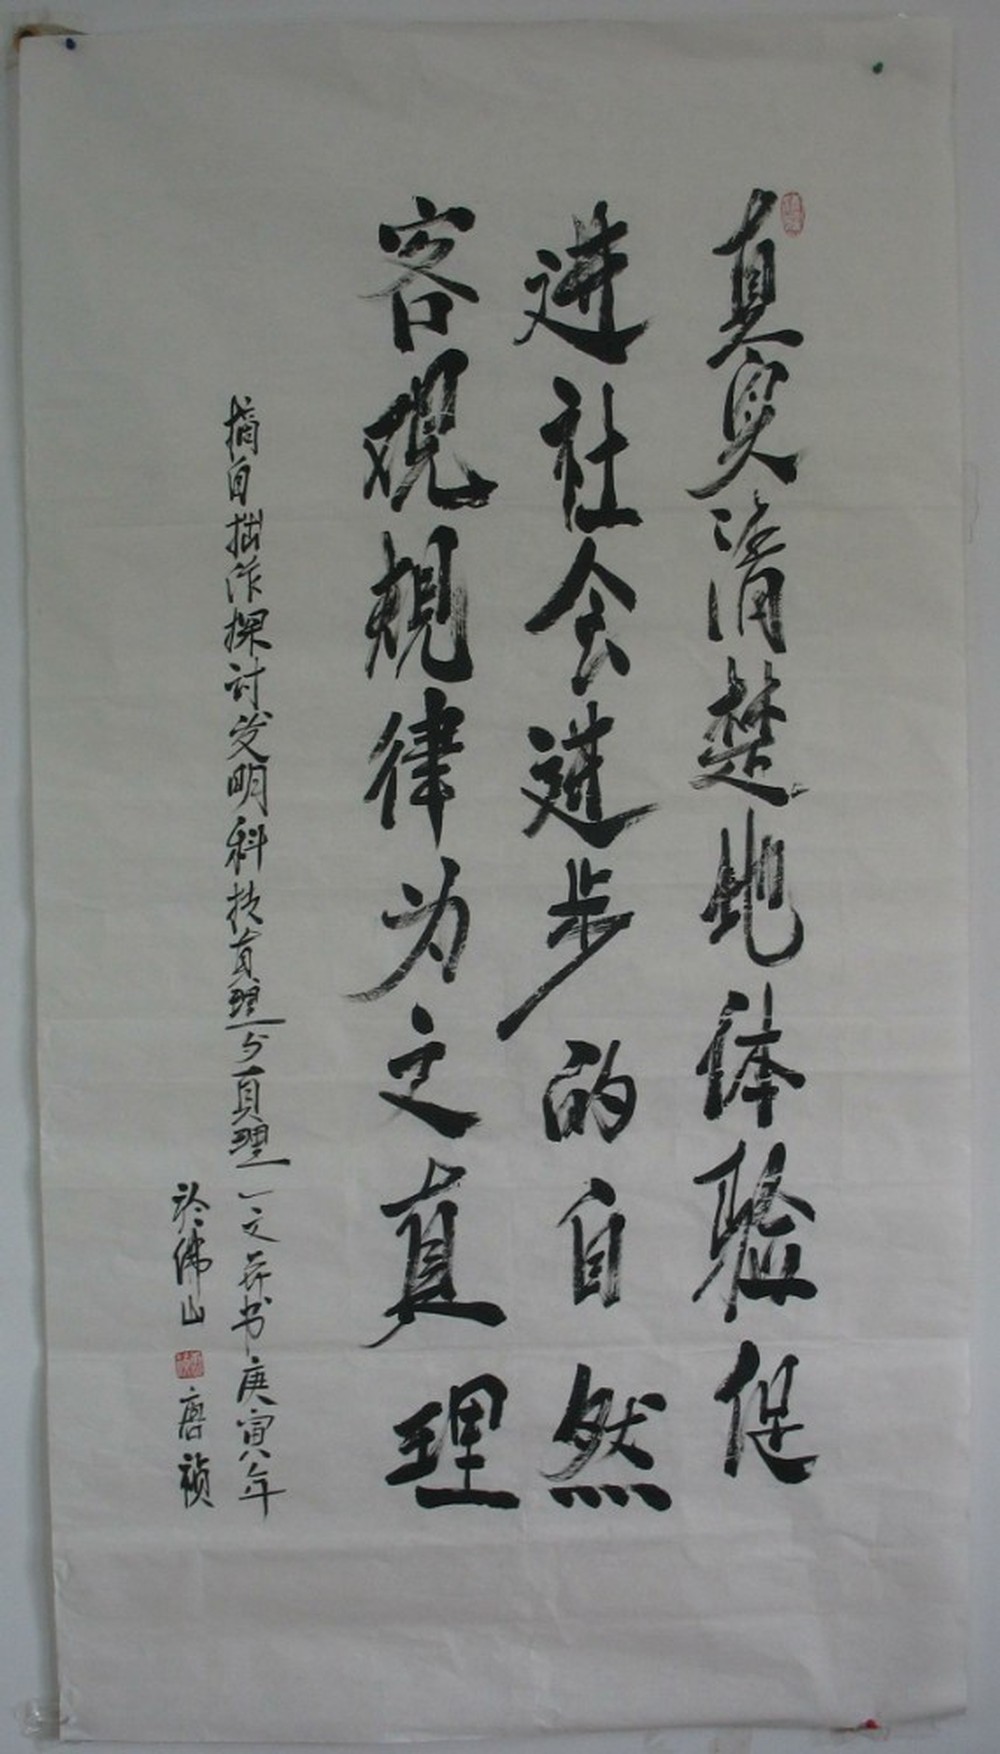 真实清楚地体验促
进社会进步的自然
客观规律为之真理
摘自拙作探讨发明科技真理与真理一文并书庚寅年
于佛山 唐祯